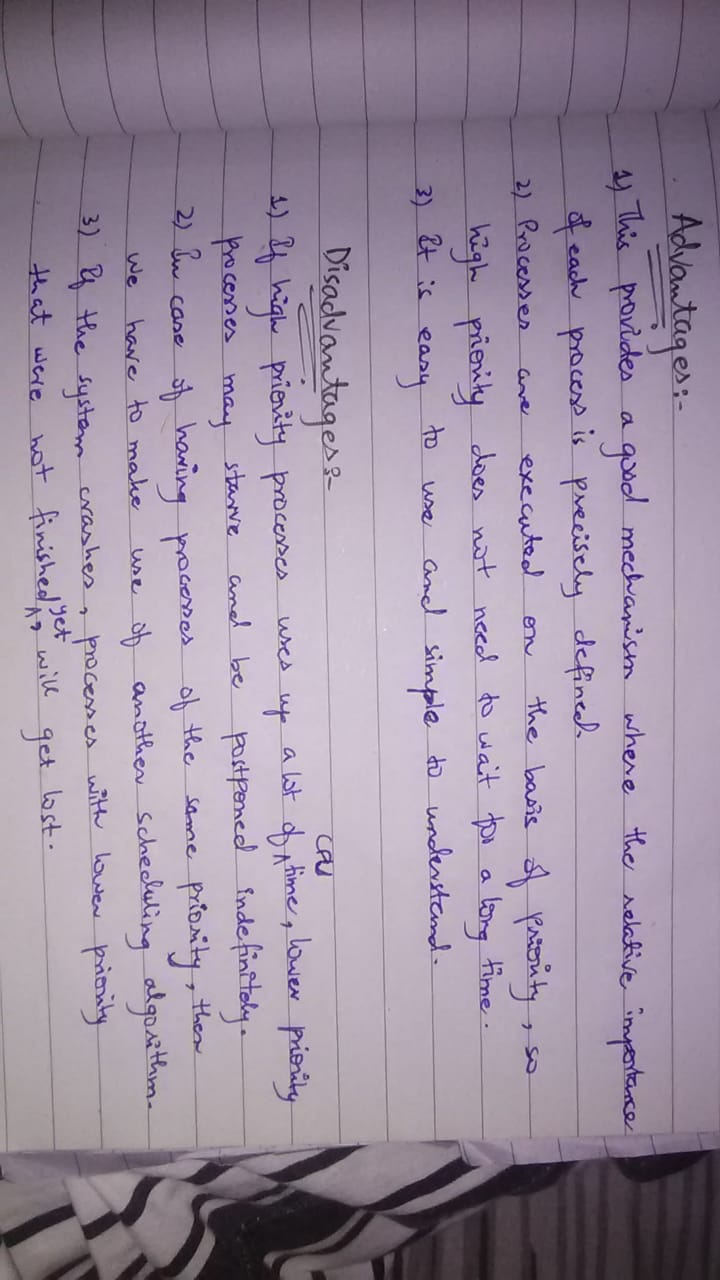 Advantages:-
1) This provides a good mechanism where the relative importance
of each process is precisely defined.
2) Processes are executed on the basis of priority, so
high priority does not need to wait for a long time.
3) It is easy to use and simple to understand.
Disadvantages:-
1) If high priority processes uses up a lot of CPU time, lower priority
processes may starve and be postponed indefinitely.
2) In case of having processes of the same priority, then
we have to make use of another scheduling algorithm.
3) If the system crashes, processes with lower priority
that were not finished yet, will get lost.